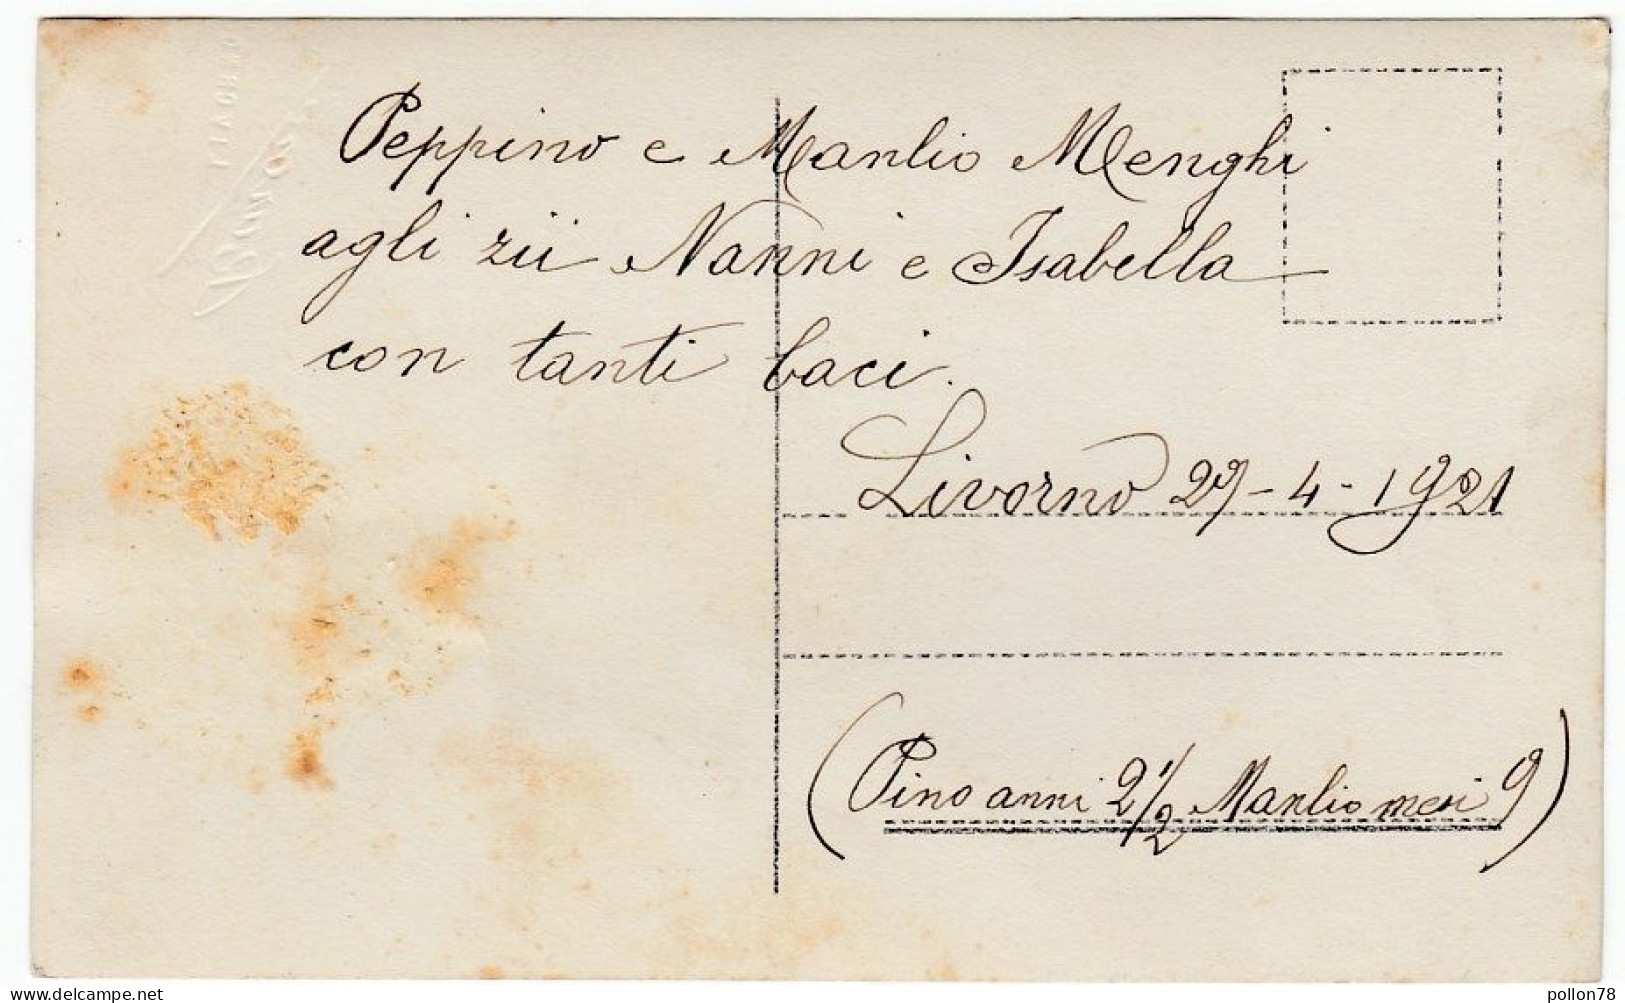 Peppino e Manlio Menghi
agli zii Nanni e Isabella
con tanti baci.
Livorno 29-4-1921
(Pino anni 2 1/2 Manlio mesi 9)
pollon78